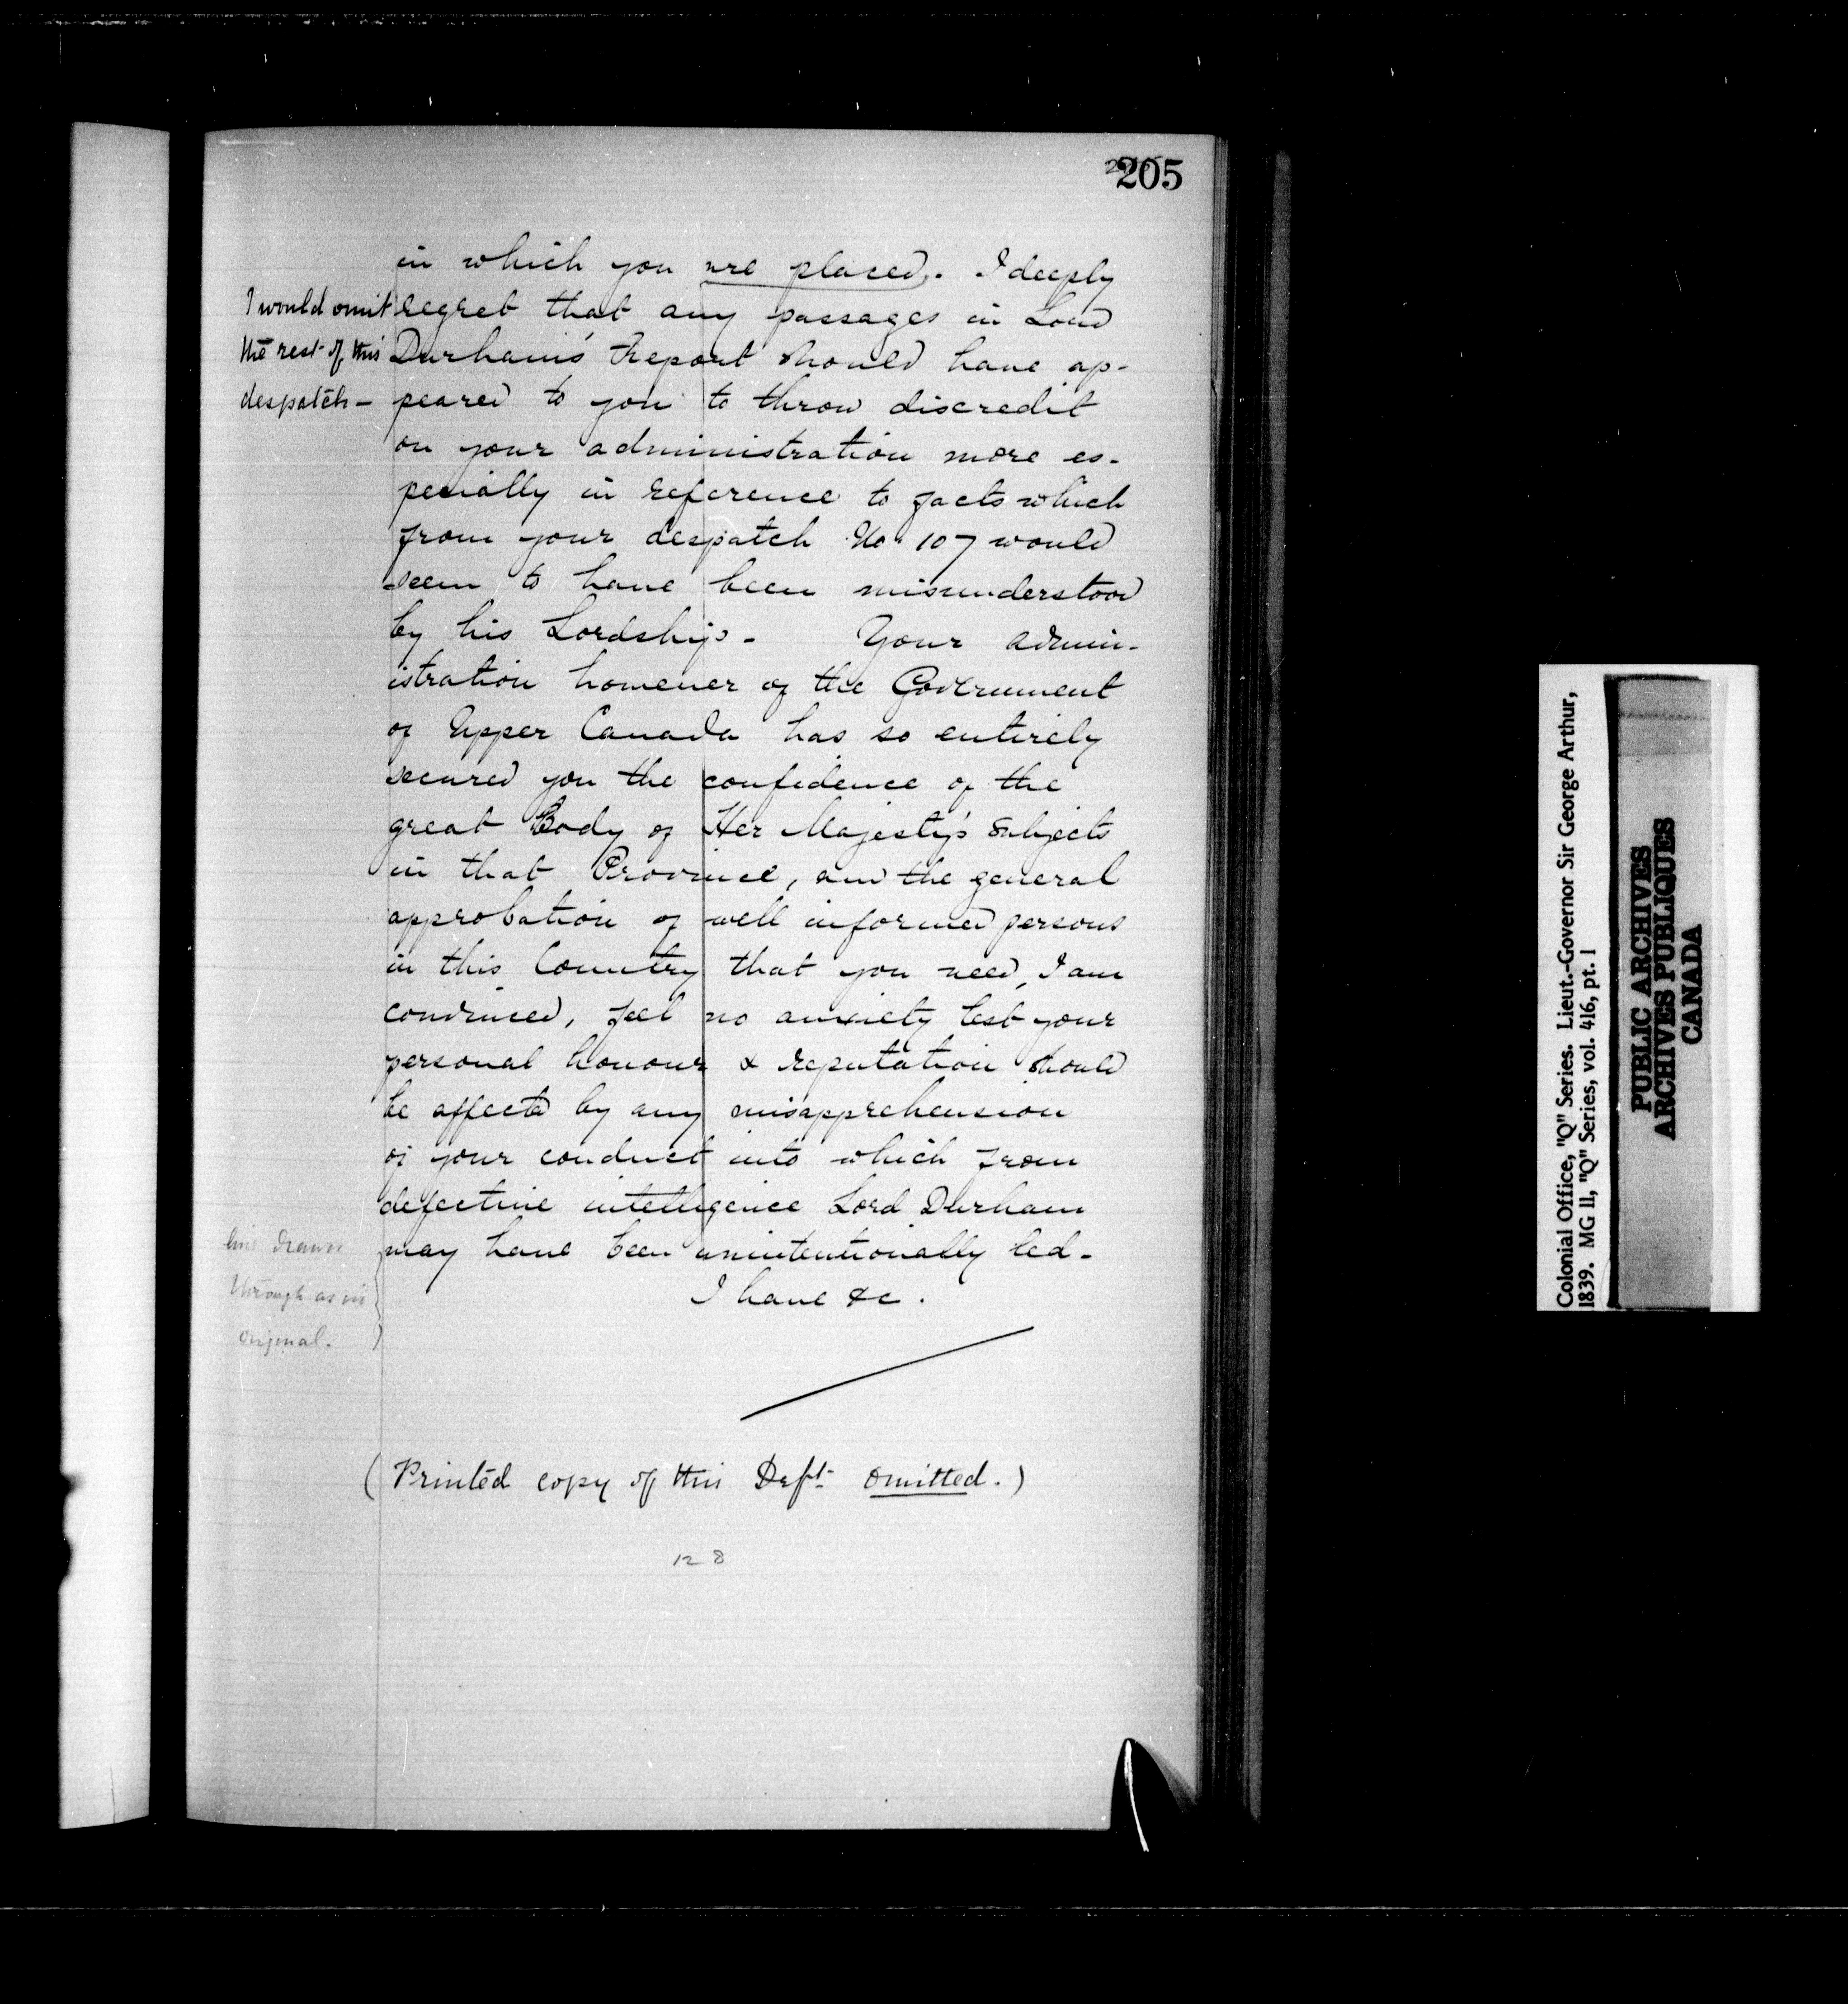 205
in which you are placed. I deeply
I would omit
the rest of this
despatch –
regret that any passages in Lord
Durham's Report should have ap-
peared to you to throw discredit
on your administration more es-
pecially in reference to facts which
from your despatch No. 107 would
seem to have been misunderstood
by his Lordship – Your admin-
istration however of the Government
of Upper Canada has so entirely
secured you the confidence of the
great Body of Her Majesty's Subjects
in that Province, and the general
approbation of well informed persons
in this Country that you need, I am
convinced, feel no anxiety lest your
personal honour & reputation should
be affected by any misapprehension
of your conduct into which from
defective intelligence Lord Durham
may have been unintentionally led –
line drawn
through as in
original.
I have &c.
(Printed copy of this Deft. omitted.)
128
Colonial Office, "Q" Series. Lieut.-Governor Sir George Arthur,
1839. MG 11, "Q" Series, vol. 416, pt. 1
PUBLIC ARCHIVES
ARCHIVES PUBLIQUES
CANADA